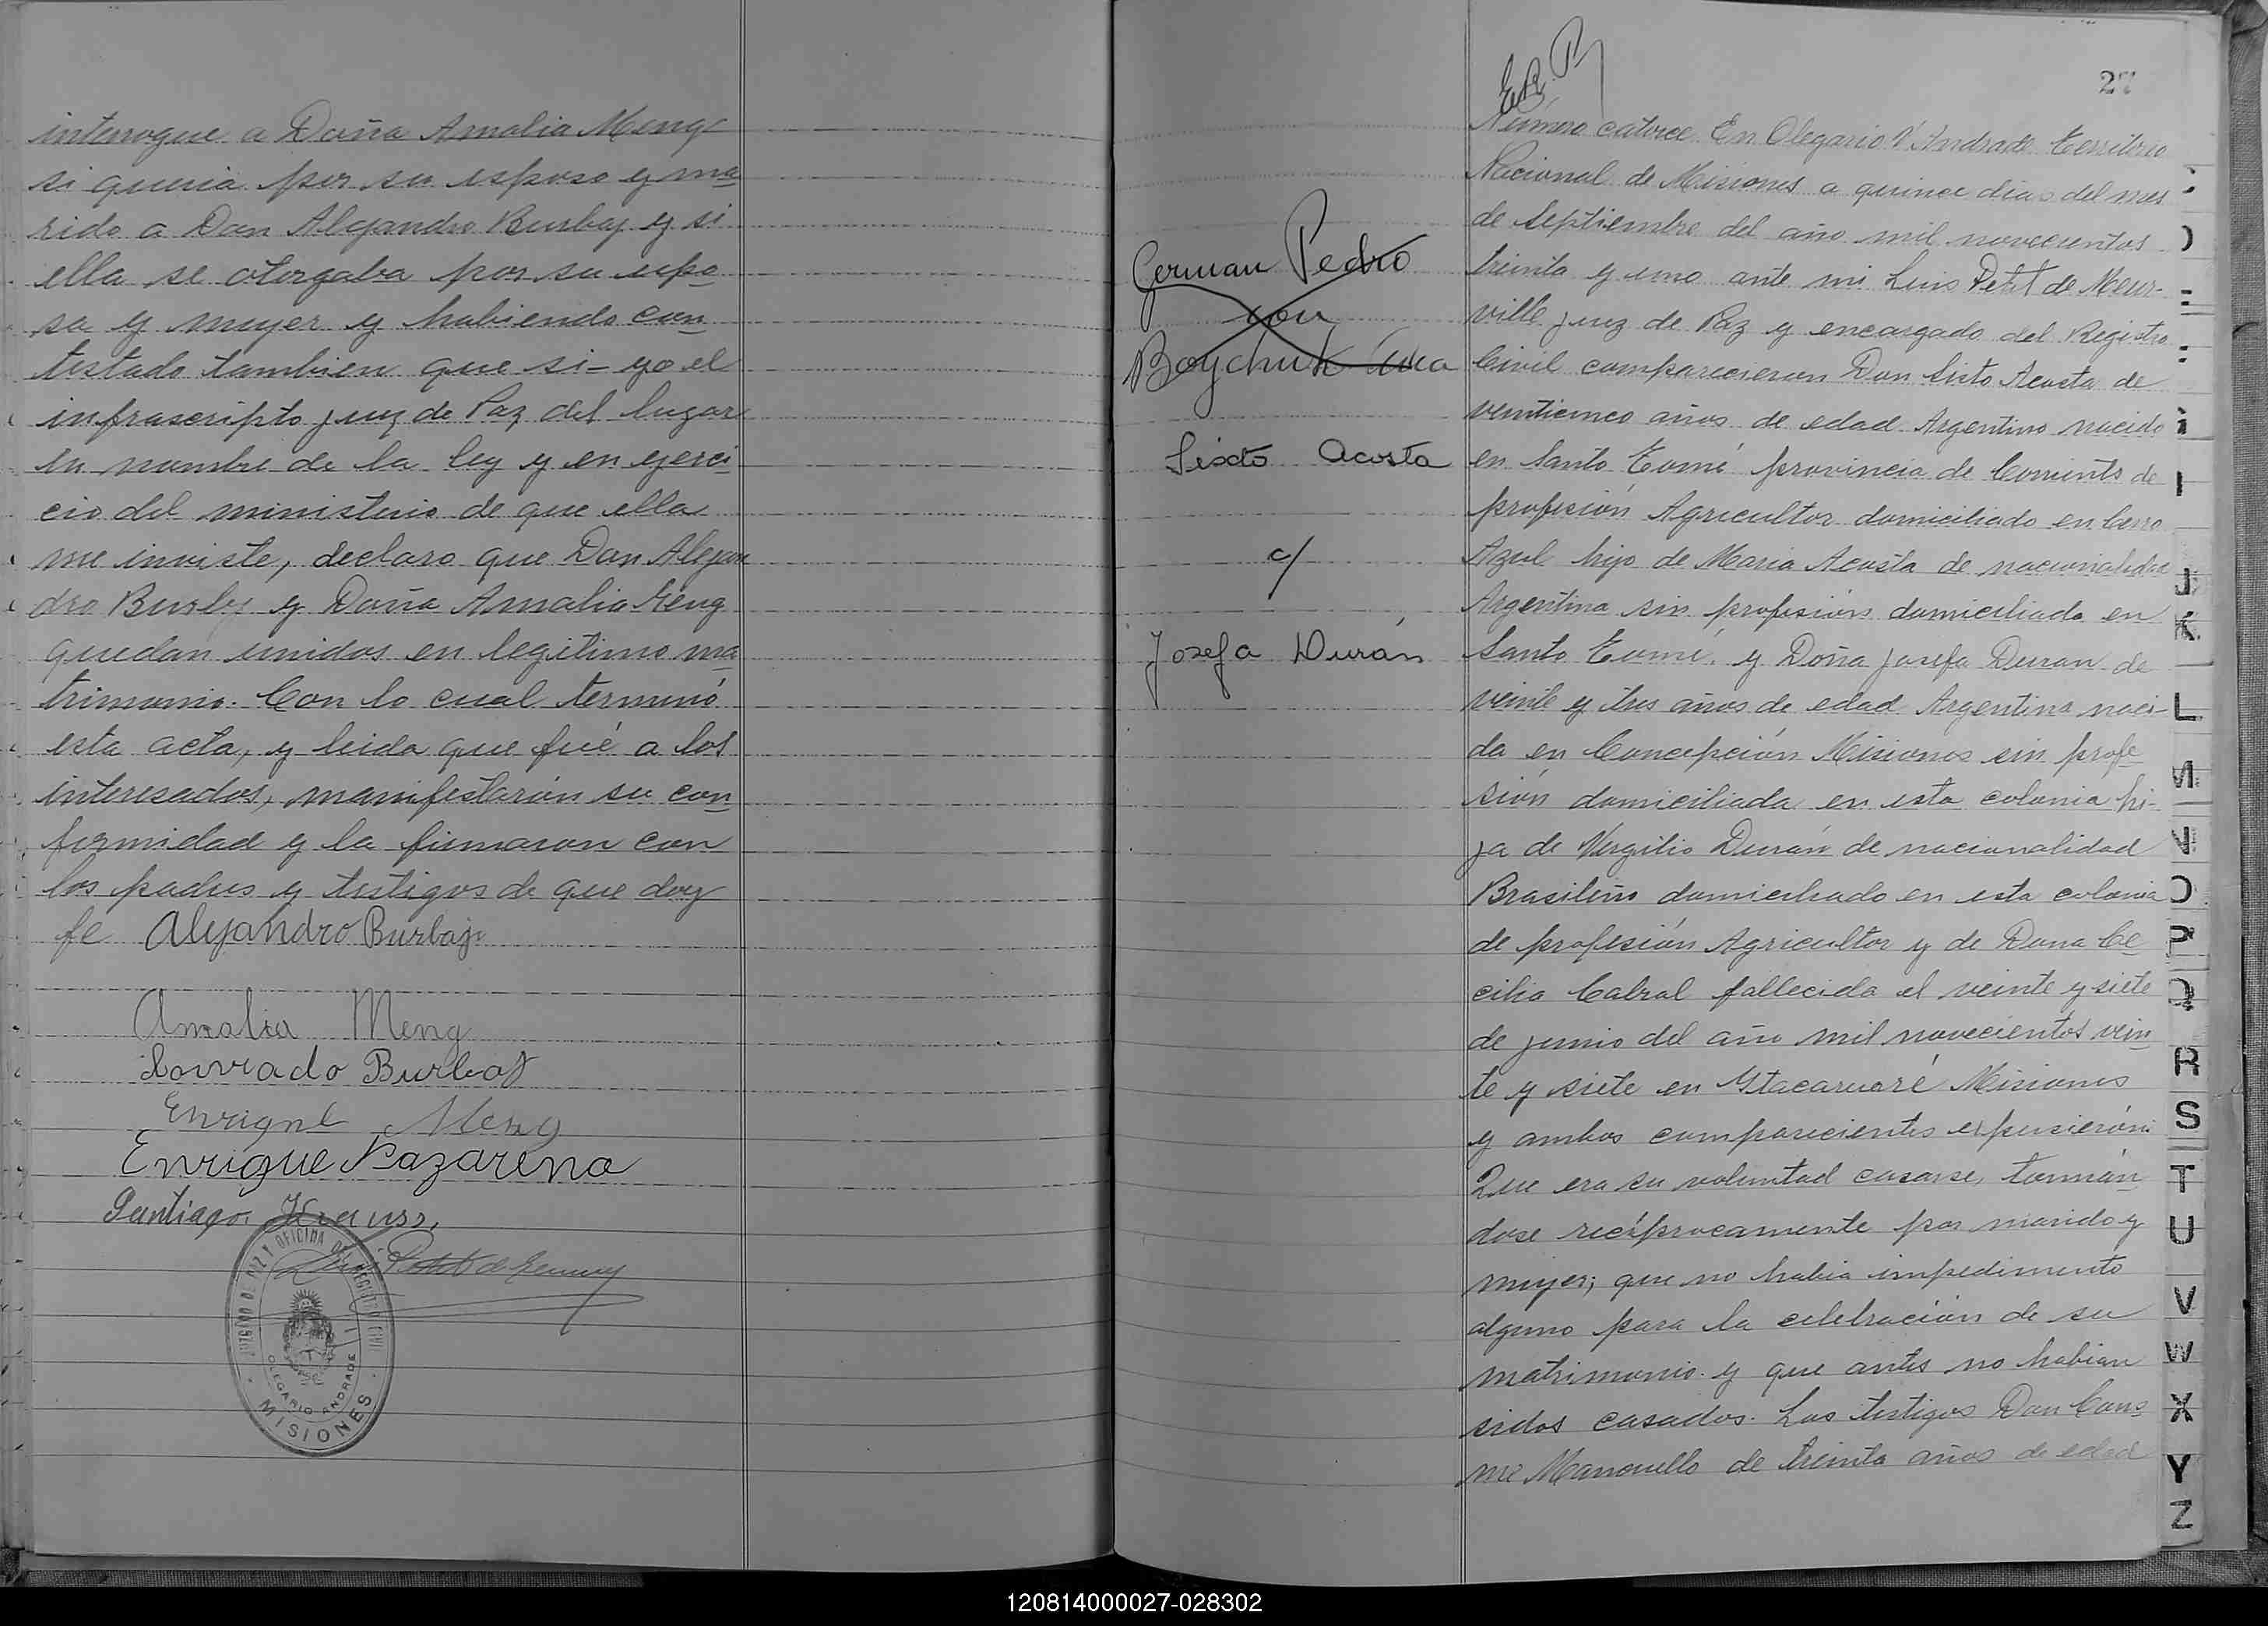 interrogue a Doña Amalia Meng
si queria por su esposo y ma
rido a Don Alejandro Burbaj y si
ella se otorgaba por su espo
sa y mujer y habiendo con
testado tambien que si - yo el
infrascripto juez de Paz del lugar
en nombre de la ley y en ejerci
cio del ministerio de que ella
me inviste, declaro que Don Alejan
dro Burbaj y Doña Amalia Meng
quedan unidos en legitimo ma
trimonio. Con lo cual terminó
esta acta, y leida que fué a los
interesados, manifestarón su con
formidad y la firmaron con
los padres y testigos de que doy
fe Alejandro Burbaj
Amalia Meng
Conrado Burbaj
Enrique Meng
Enrique Nazareno
Santiago Krauss.
JUZGADO DE PAZ Y OFICINA DE REGISTRO CIVIL
OLEGARIO ANDRADE
MISIONES
27
German Pedro
con
Boychuk
Sixto Acosta
c/
Josefa Durán
Número catorce En Olegario V Andrade territorio
Nacional de Misiones a quince dias del mes
de Septiembre del año mil novecientos
treinta y uno ante mi Luis Petit de Meur-
ville juez de Paz y encargado del Registro
Civil comparecieron Don Sisto Acosta de
veinticinco años de edad Argentino nacido
en Santo Tomé provincia de Corrients de
profesión Agricultor domiciliado en Cerro
Azul hijo de Maria Acosta de nacionalidad
Argentina sin profesión domiciliada en
Santo Tomé, y Doña Josefa Duran de
veinte y tres años de edad Argentina naci-
da en Concepción Misiones sin profe
sión domiciliada en esta colonia hi-
ja de Vergilio Durán de nacionalidad
Brasileño domiciliado en esta colonia
de profesión Agricultor y de Dona Ce
cilia Cabral fallecida el veinte y siete
de junio del año mil novecientos vein
te y siete en Itacaruaré Misiones
y ambos comparecientes expusierón:
Que era su voluntad casarse, tomán
dose recíprocamente por marido y
mujer; que no habia impedimento
alguno para la celebración de su
matrimonio y que antes no habian
sidos casados. Los testigos Don Cos
me Manouello de treinta años de edad
I
J
K
L
M
N
O
P
Q
R
S
T
U
V
W
X
Y
Z
120814000027-028302